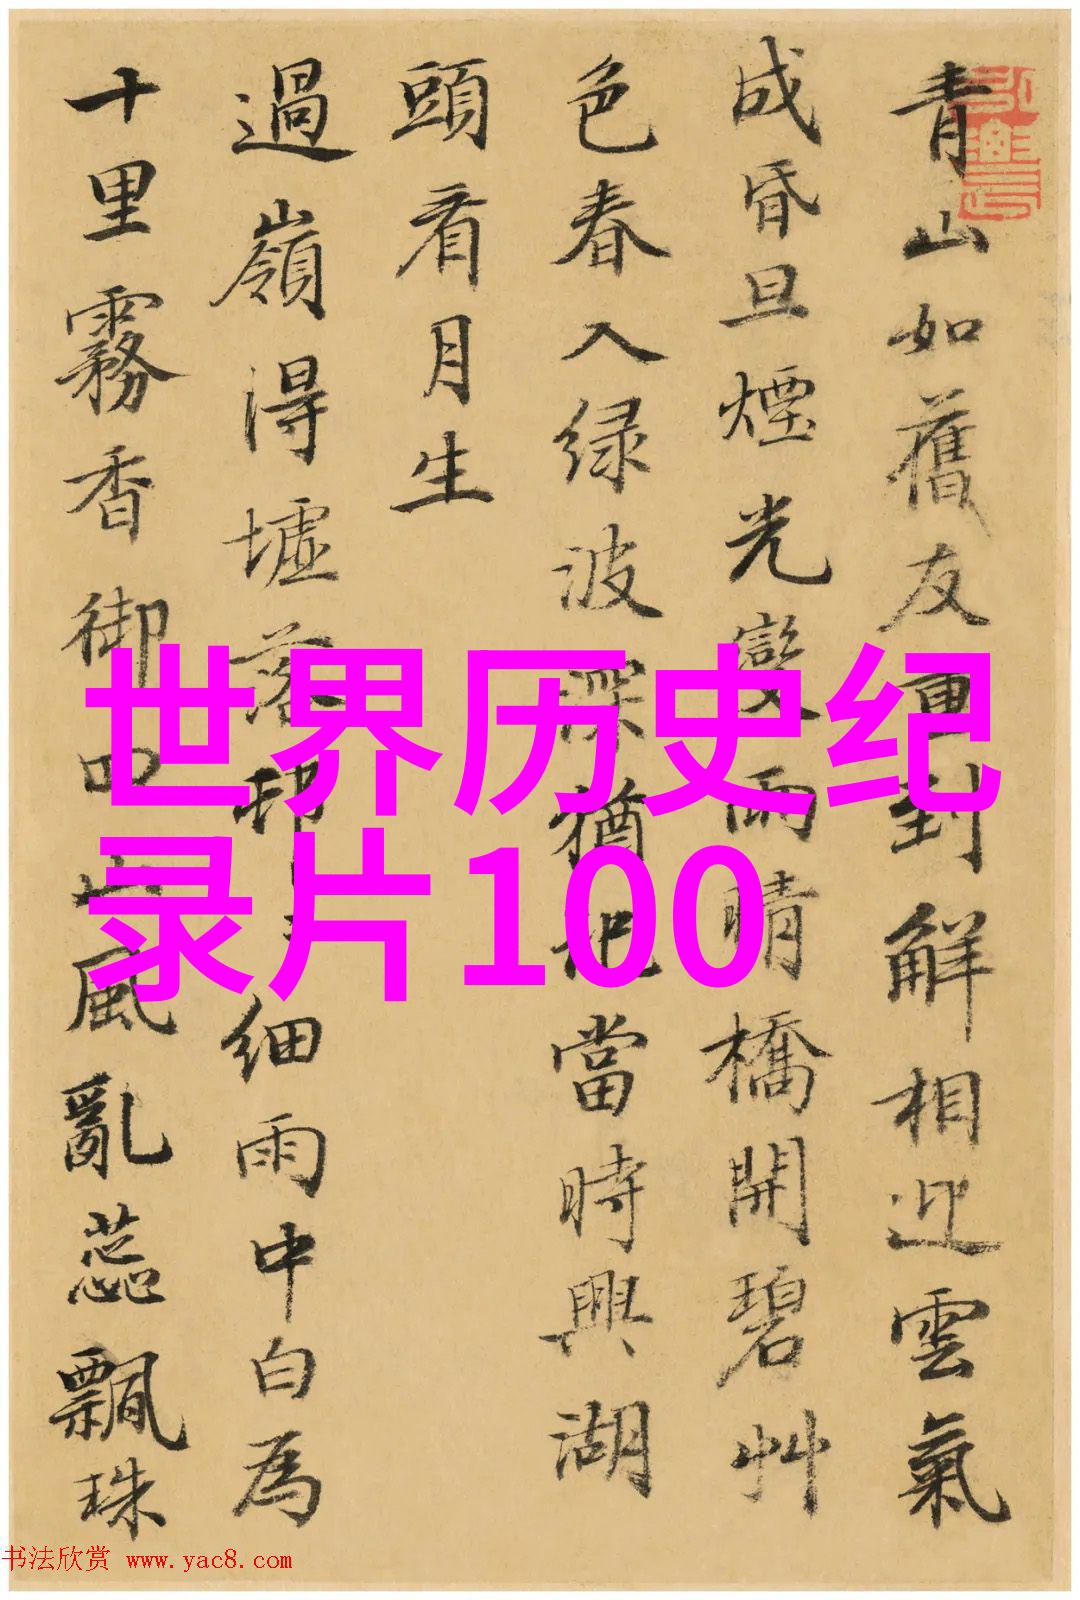 青山如舊友重到解相迎雲氣
成昏旦煙光變雨晴橋開碧艸
色春入绿波深猶記當時興湖
頭看月生
過嶺得墟落邨細雨中白為
十里霧香御四山風亂蕊飄珠
世界历史纪
录片100
书法欣赏 www.yac8.com